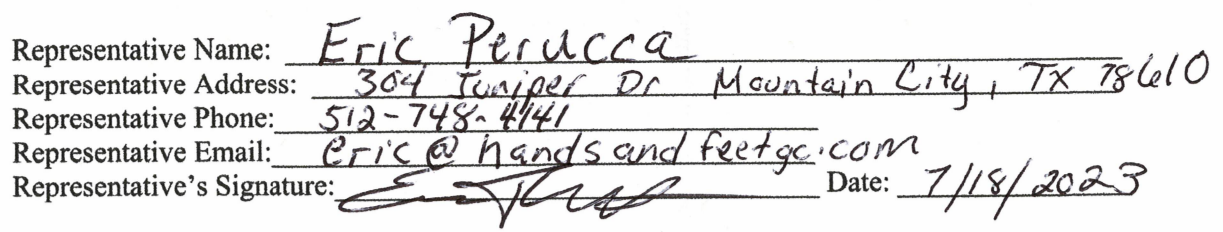 Representative Name: Eric Perucca
Representative Address: 304 Juniper Dr Mountain City, TX 78610
Representative Phone: 512-748-4141
Representative Email: eric@handsandfeetgc.com
Representative's Signature: Date: 7/18/2023